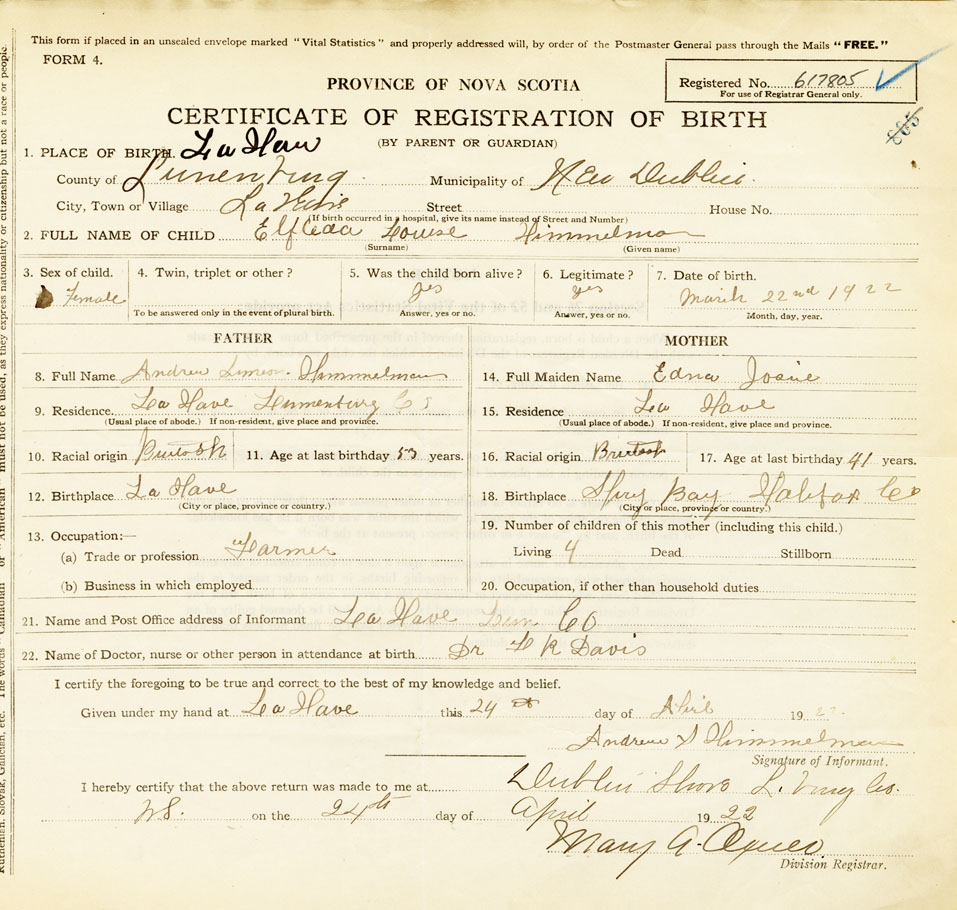 This form if placed in an unsealed envelope marked "Vital Statistics" and properly addressed will, by order of the Postmaster General pass through the Mails "FREE."
FORM 4.
Registered No. 617805
For use of Registrar General only.
PROVINCE OF NOVA SCOTIA
CERTIFICATE OF REGISTRATION OF BIRTH
(BY PARENT OR GUARDIAN)
1. PLACE OF BIRTH. La Have
County of Lunenburg Municipality of New Dublin
City, Town or Village La Have Street House No.
(If birth occurred in a hospital, give its name instead of Street and Number)
2. FULL NAME OF CHILD Elfleda Louise Himmelman
(Surname) (Given name)
3. Sex of child. 4. Twin, triplet or other? 5. Was the child born alive? 6. Legitimate? 7. Date of birth.
Female yes yes March 22nd 1922
To be answered only in the event of plural birth. Answer, yes or no. Answer, yes or no. Month, day, year.
FATHER
8. Full Name Andrew Himmelman
9. Residence. La Have Lunenburg Co
(Usual place of abode.) If non-resident, give place and province.
10. Racial origin 11. Age at last birthday 53 years.
12. Birthplace La Have
(City or place, province or country.)
13. Occupation:—
(a) Trade or profession Farmer
(b) Business in which employed
MOTHER
14. Full Maiden Name Edna Josie
15. Residence La Have
(Usual place of abode.) If non-resident, give place and province.
16. Racial origin 17. Age at last birthday 41 years.
18. Birthplace Spry Bay Halifax Co
(City or place, province or country.)
19. Number of children of this mother (including this child.)
Living 4 Dead Stillborn
20. Occupation, if other than household duties
21. Name and Post Office address of Informant La Have Lun Co
22. Name of Doctor, nurse or other person in attendance at birth Dr F R Davis
I certify the foregoing to be true and correct to the best of my knowledge and belief.
Given under my hand at La Have this 24 day of April 1922
Andrew S Himmelman
Signature of Informant.
I hereby certify that the above return was made to me at Dublin Shore L. Co.
N.S. on the 24th day of April 1922
Mary A.
Division Registrar.